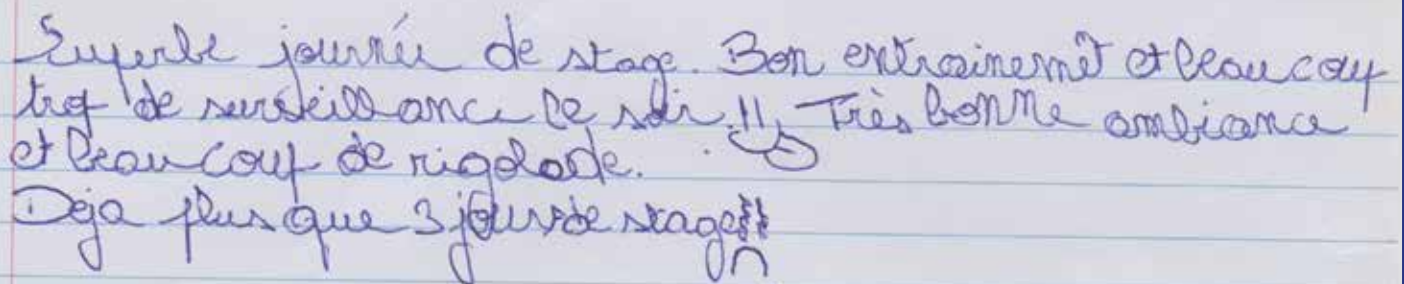 Superbe journée de stage. Bon entrainemt et beaucoup
trop de surveillance le soir !! Très bonne ambiance
et beaucoup de rigolade.
Deja plus que 3 jours de stage!!